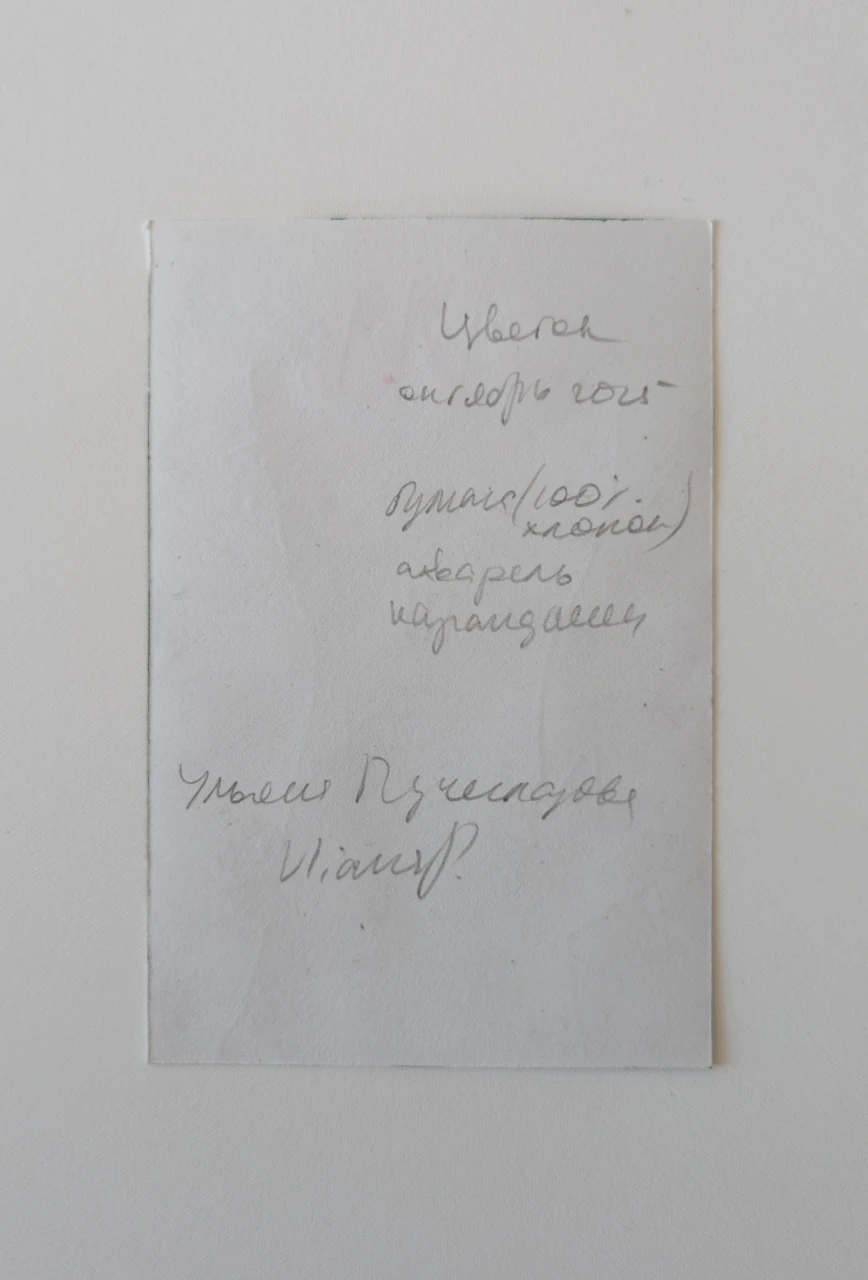 Цветок
октябрь 2025
бумага (100%
хлопок)
акварель
карандаши
Ульяна